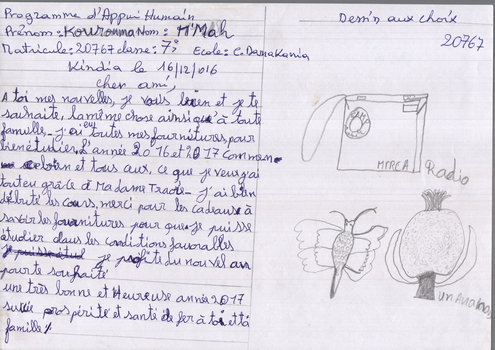 Programme d'Appui Humain
Prénom = Kourouma Nom: M'Mah
Matricule: 20767 classe: 7è Ecole: C. Damakania
Kindia le 16/12/016
cher ami,
A toi mes nouvelles, je vais bien et je te
souhaite, la même chose ainsi qu'à toute
famille - j'ai eu toutes mes fournitures, pour
bien étudier. L'année 2016 et 2017 commen
bien et tous aux, ce que je veux j'ai
touteu grâce à Madame Traoré - j'ai bien
débuté les cours, merci pour les cadeaux à
savoir les fournitures pour que je puisse
étudier dans les conditions favorables
je profite du nouvel an
pour te souhaité
une très bonne et Heureuse année 2017
prospérité et santé de fer à toi et ta
famille
Dessin aux choix
20767
Radio
un Ananas